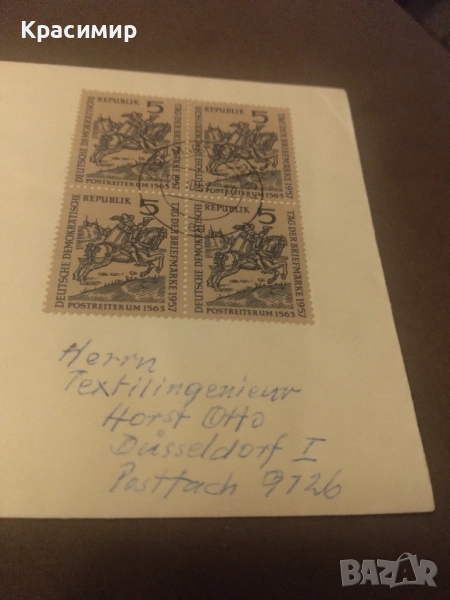 Красимир
DEUTSCHE DEMOKRATISCHE
REPUBLIK 5
TAG DER BRIEFMARKE 1957
POSTREITER UM 1563
DEUTSCHE DEMOKRATISCHE
REPUBLIK 5
TAG DER BRIEFMARKE 1957
POSTREITER UM 1563
DEUTSCHE DEMOKRATISCHE
REPUBLIK 5
TAG DER BRIEFMARKE 1957
POSTREITER UM 1563
DEUTSCHE DEMOKRATISCHE
REPUBLIK 5
TAG DER BRIEFMARKE 1957
POSTREITER UM 1563
Herrn
Textilingenieur
Horst Otto
Düsseldorf I
Postfach 9126
BAZAR